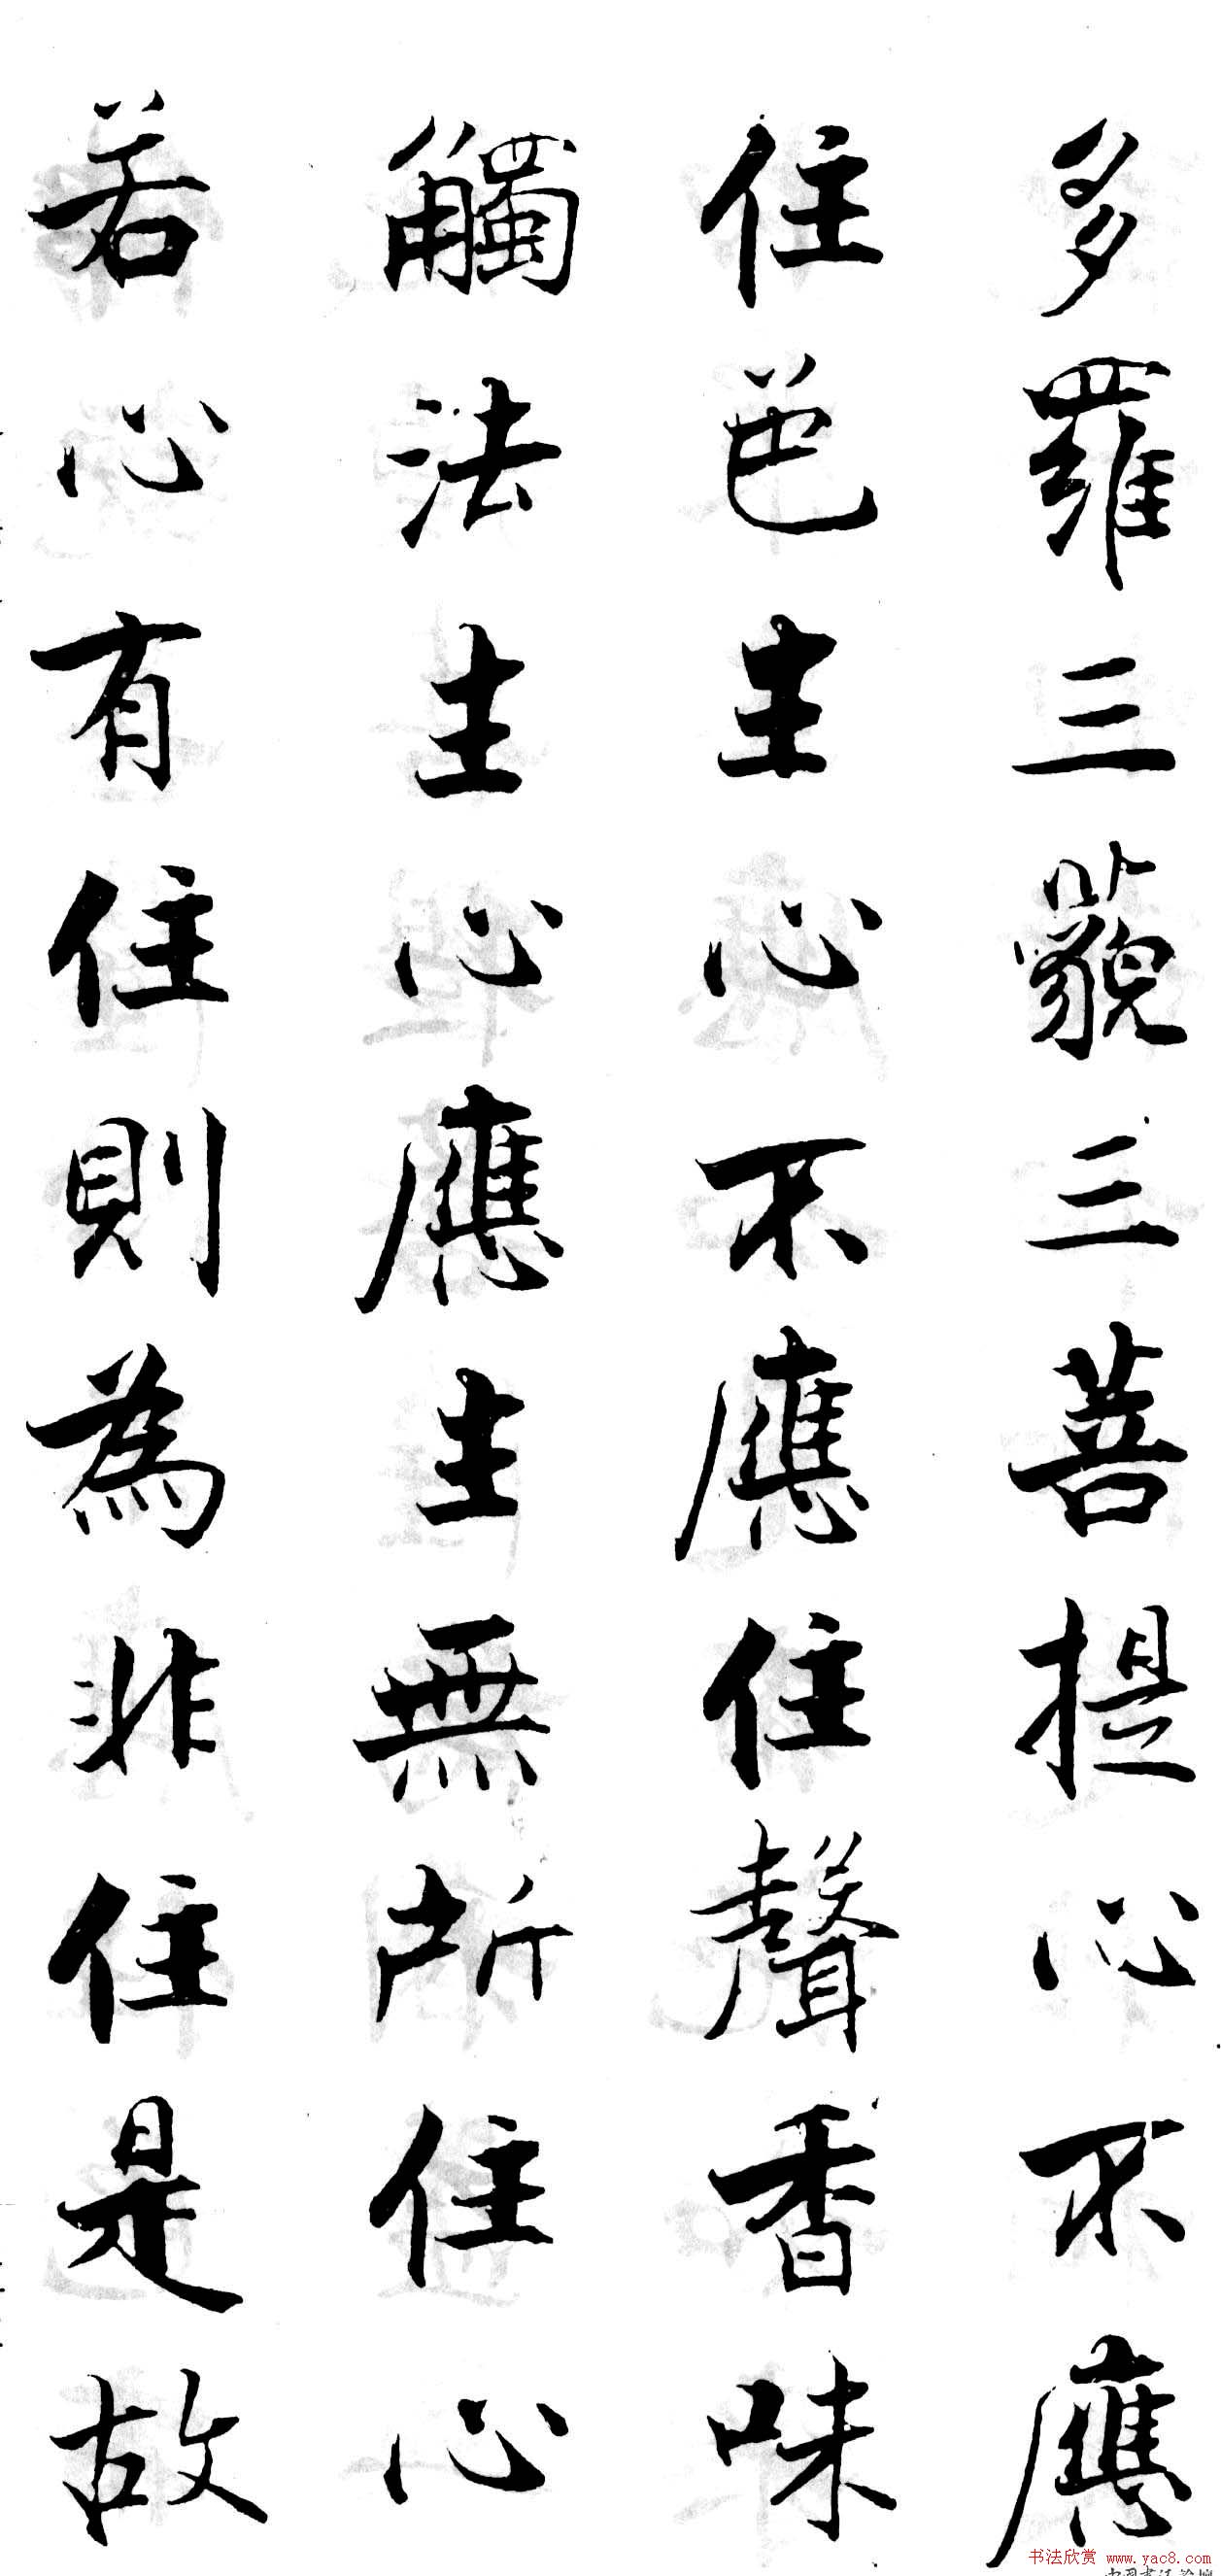 多羅三藐三菩提心不應
住色生心不應住聲香味
觸法生心應生無所住心
若心有住則為非住是故
书法欣赏 www.yac8.com